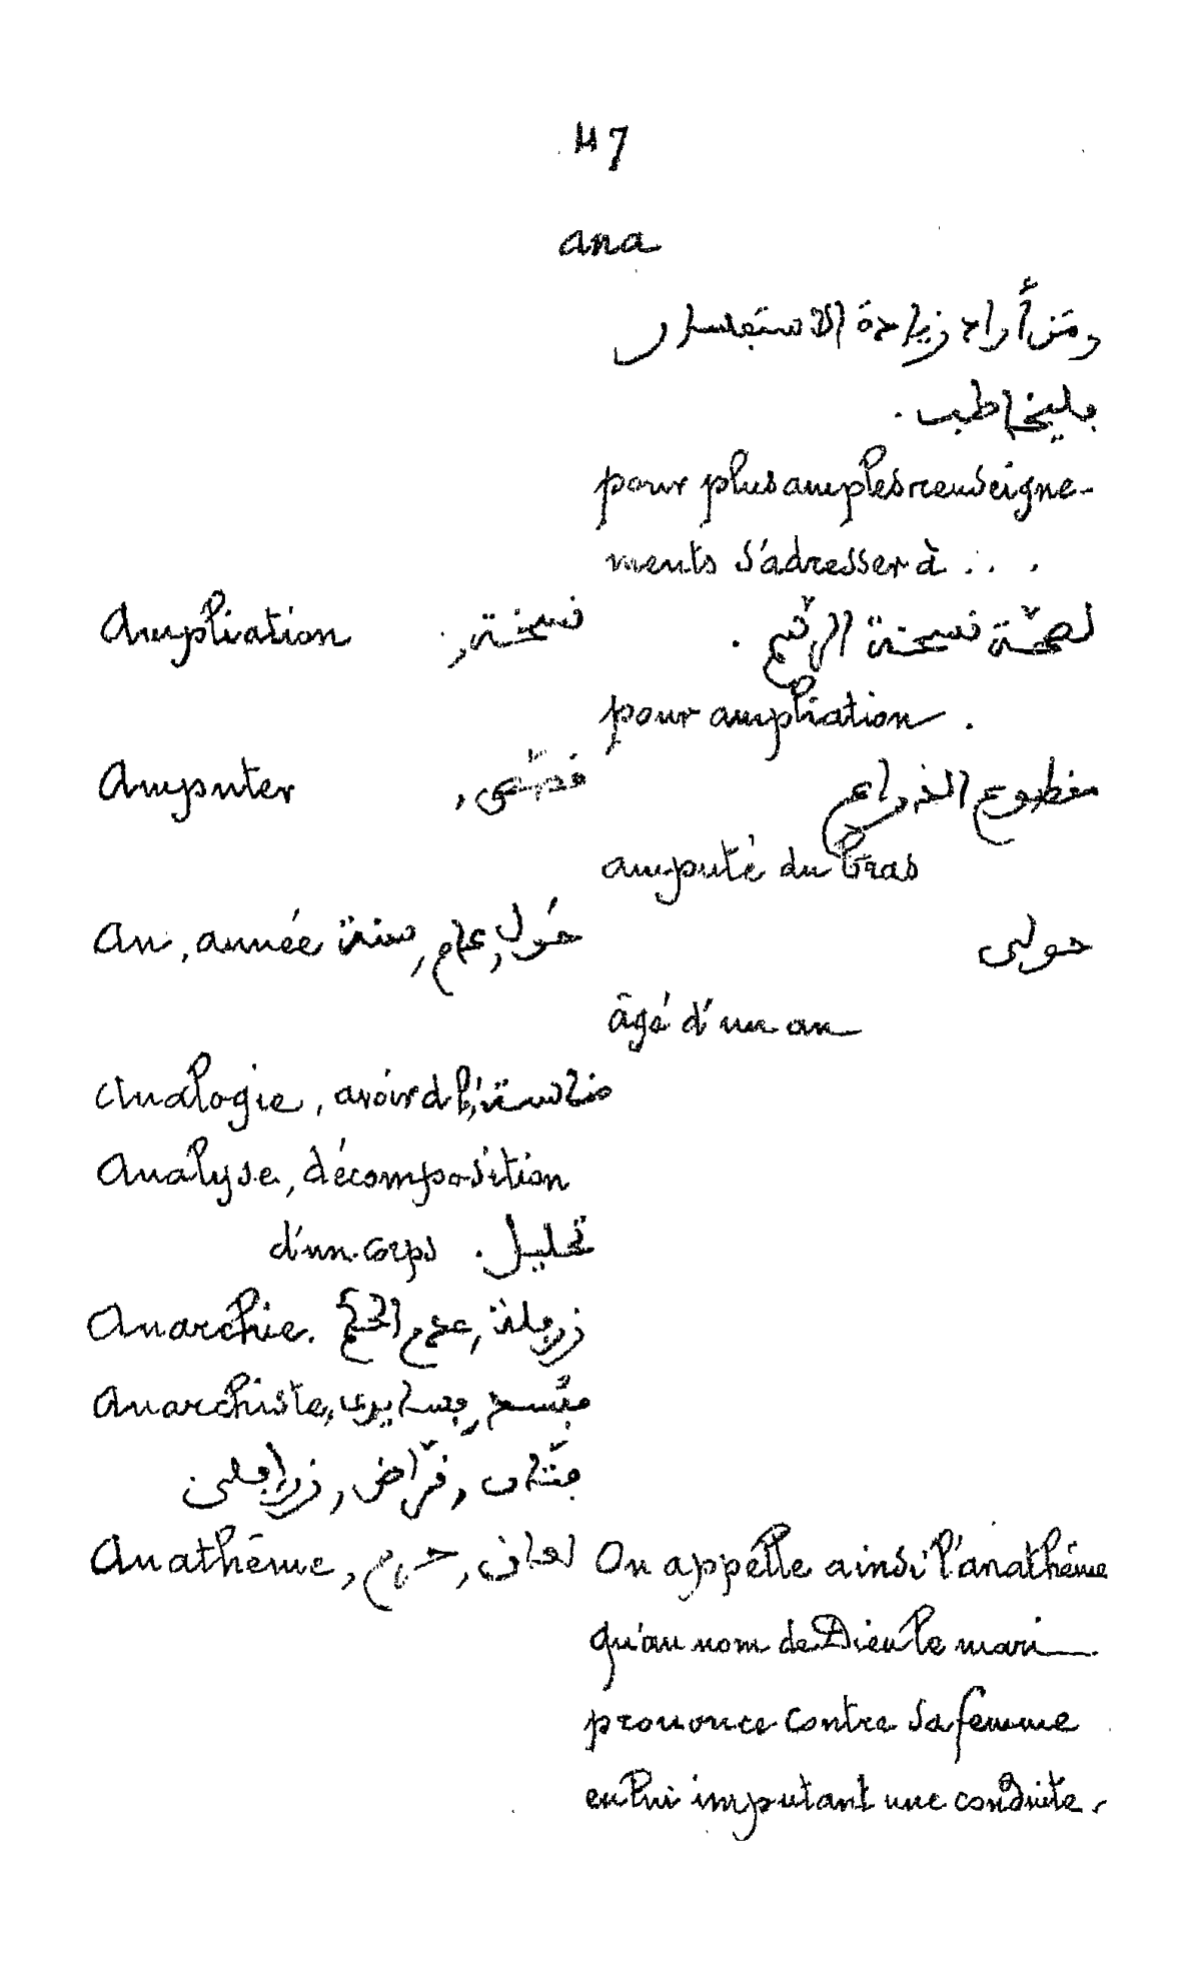 47
ana
ومَن أراد زيادة الاستفسار
فليخاطب .
pour plus amples renseigne-
ments s'adresser à . . .
Ampliation نسخة, لصحّة نسخة الرقيم .
pour ampliation .
Amputer , مقطوع الذراع
amputé du bras
An, année حَول, عام, سنة حولي
âgé d'un an
Analogie, avoir de l', مناسبة
Analyse, décomposition
d'un corps . تحليل
Anarchie. زربلة, عدم الحكم
Anarchiste,
فتّان, قرّاض,
Anathême, لعان, حرم On appelle ainsi l'anathême
qu'au nom de Dieu le mari
prononce contre sa femme
en lui imputant une conduite